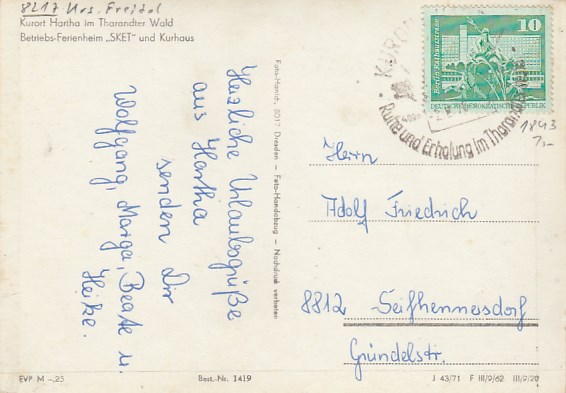 8217 Krs. Freital
Kurort Hartha im Tharandter Wald
Betriebs-Ferienheim „SKET" und Kurhaus
Herzliche Urlaubsgrüße
aus Hartha
senden Dir
Wolfgang, Marga, Beate u.
Heike.
Foto-Hanich, 8017 Dresden – Foto-Handabzug – Nachdruck verboten
10
Berlin, Rathausstraße
DEUTSCHE DEMOKRATISCHE REPUBLIK
KUROR
Ruhe und Erholung im Tharandter
1843
1,-
Herrn
Adolf Friedrich
8812 Seifhennersdorf
Gründelstr.
EVP M –,25
Best.-Nr. 1419
J 43/71 F III/9/62 III/9/20